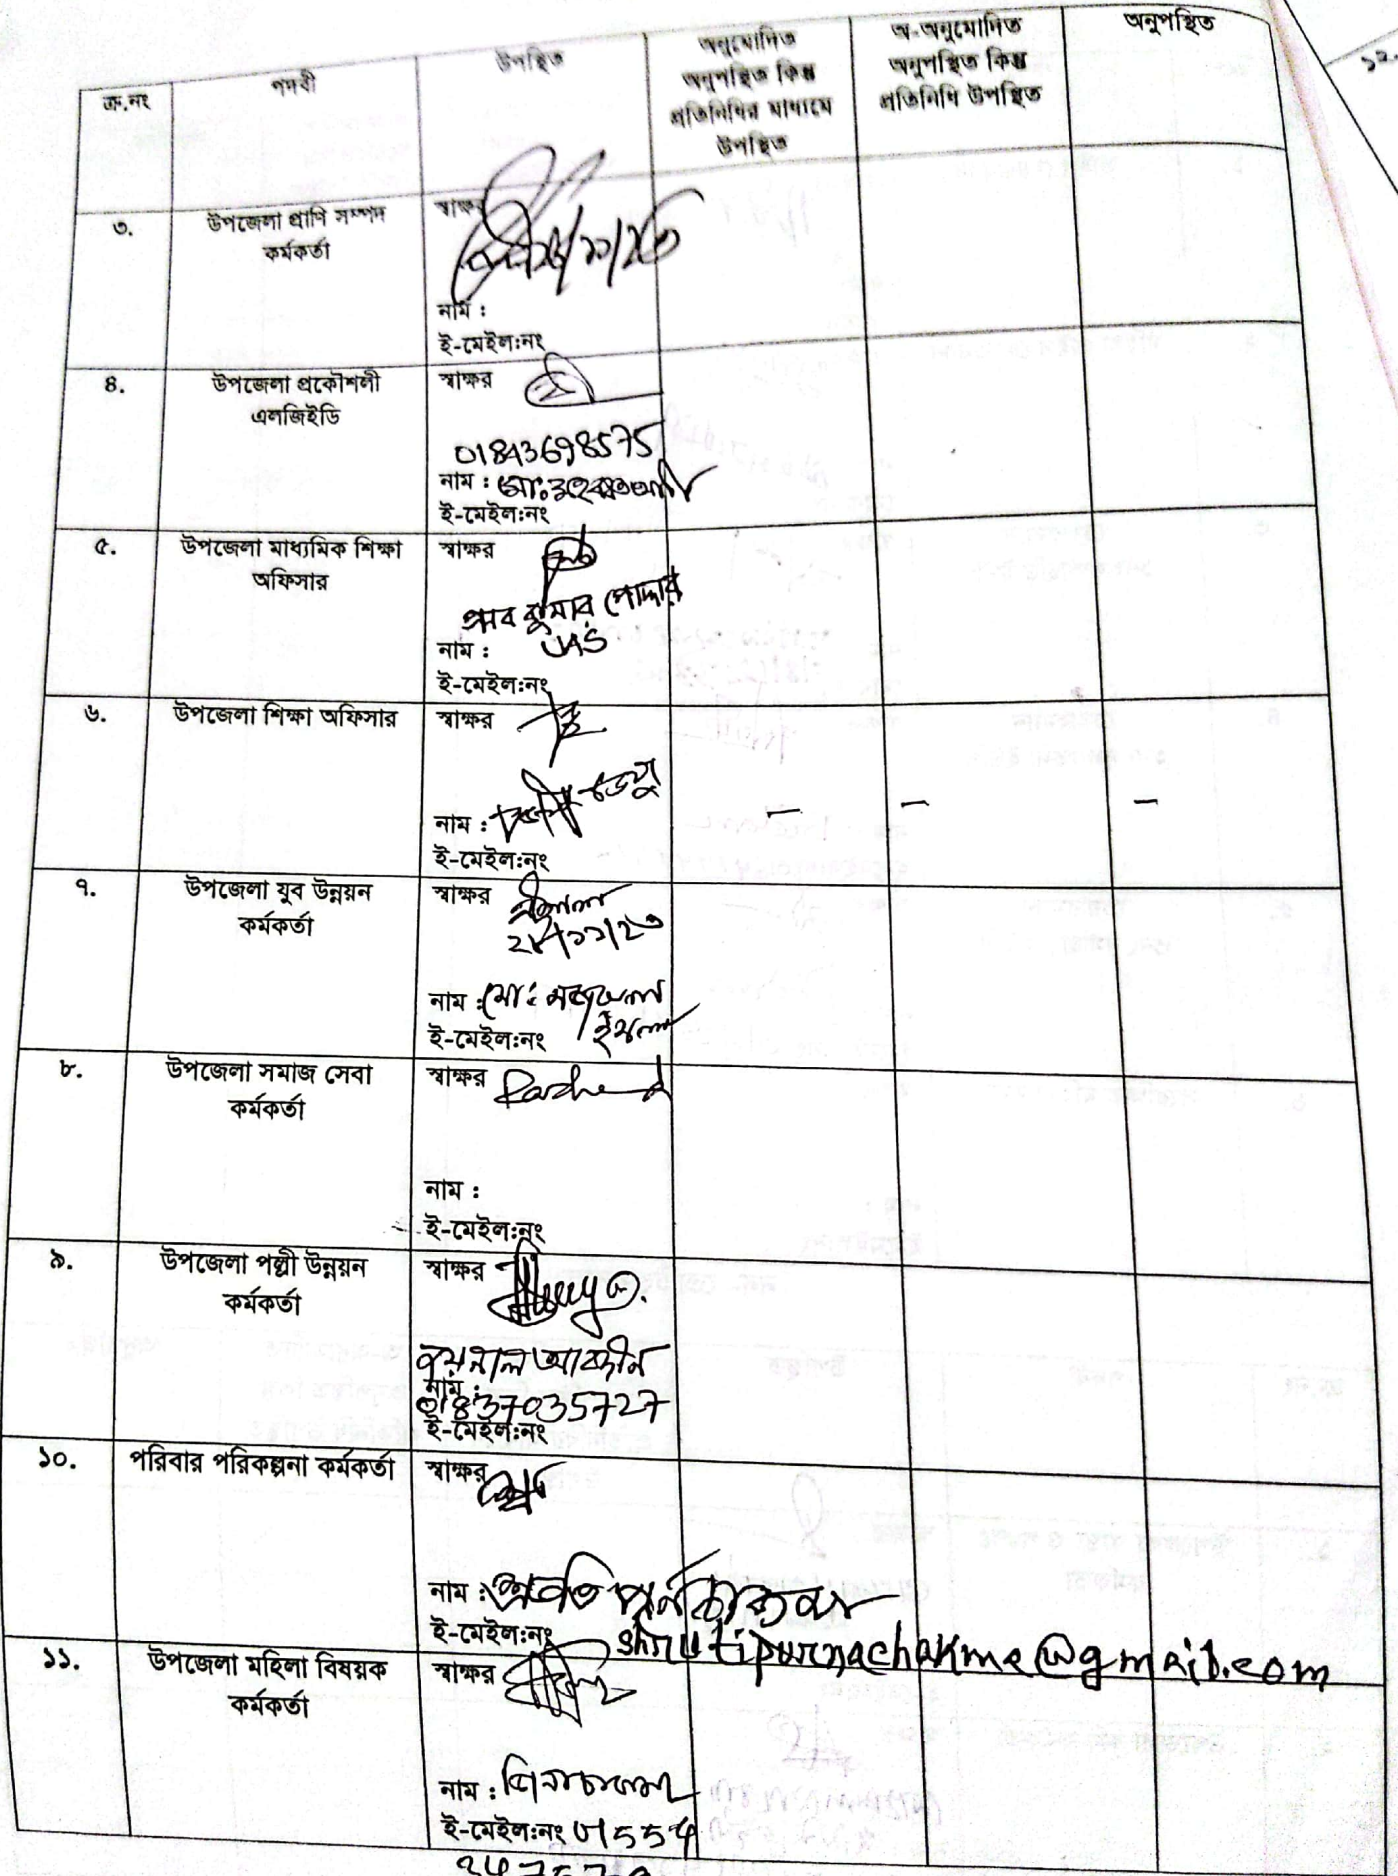 ক্র.নং
পদবী
উপস্থিত
অনুমোদিত
অনুপস্থিত কিন্তু
প্রতিনিধির মাধ্যমে
উপস্থিত
অ-অনুমোদিত
অনুপস্থিত কিন্তু
প্রতিনিধি উপস্থিত
অনুপস্থিত
১২.
৩.
উপজেলা প্রাণি সম্পদ
কর্মকর্তা
স্বাক্ষর
নাম :
ই-মেইল:নং
৪.
উপজেলা প্রকৌশলী
এলজিইডি
স্বাক্ষর
01843698575
নাম : মোঃ
ই-মেইল:নং
৫.
উপজেলা মাধ্যমিক শিক্ষা
অফিসার
স্বাক্ষর
কুমার পোদ্দার
নাম : UAS
ই-মেইল:নং
৬.
উপজেলা শিক্ষা অফিসার
স্বাক্ষর
নাম :
ই-মেইল:নং
৭.
উপজেলা যুব উন্নয়ন
কর্মকর্তা
স্বাক্ষর
নাম : মোঃ
ই-মেইল:নং
৮.
উপজেলা সমাজ সেবা
কর্মকর্তা
স্বাক্ষর
নাম :
ই-মেইল:নং
৯.
উপজেলা পল্লী উন্নয়ন
কর্মকর্তা
স্বাক্ষর
জয়নাল আবেদীন
নাম :
01837035727
ই-মেইল:নং
১০.
পরিবার পরিকল্পনা কর্মকর্তা
স্বাক্ষর
নাম : শ্রুতি পূর্ণ চাকমা
ই-মেইল:নং shrutipurnachakma@gmail.com
১১.
উপজেলা মহিলা বিষয়ক
কর্মকর্তা
স্বাক্ষর
নাম :
ই-মেইল:নং 01554